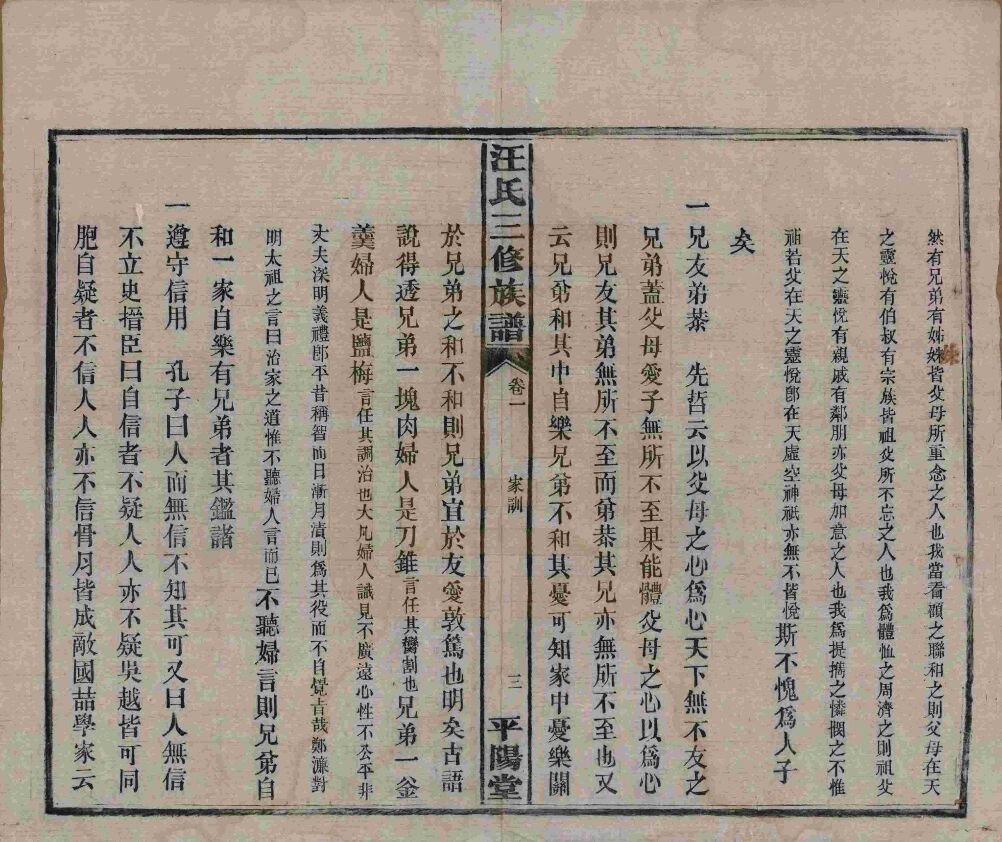 然有兄弟有姊妹皆父母所重念之人也我當看顧之聯和之則父母在天
之靈悅有伯叔有宗族皆祖父所不忘之人也我爲體恤之周濟之則祖父
在天之靈悅有親戚有鄰朋亦父母加意之人也我爲提攜之憐憫之不惟
祖若父在天之靈悅卽在天虛空神祇亦無不皆悅斯不愧爲人子
矣
一兄友弟恭 先哲云以父母之心爲心天下無不友之
兄弟蓋父母愛子無所不至果能體父母之心以爲心
則兄友其弟無所不至而弟恭其兄亦無所不至也又
云兄弟和其中自樂兄弟不和其憂可知家中憂樂關
汪氏三修族譜 卷一 家訓 三 平陽堂
於兄弟之和不和則兄弟宜於友愛敦篤也明矣古語
說得透兄弟一塊肉婦人是刀錐言任其臠割也兄弟一釡
羹婦人是鹽梅言任其調治也大凡婦人識見不廣遠心性不公平非
丈夫深明義禮卽平昔稱智而日漸月漬則爲其役而不自覺吉哉鄭濂對
明太祖之言曰治家之道惟不聽婦人言而已不聽婦言則兄弟自
和一家自樂有兄弟者其鑑諸
一遵守信用 孔子曰人而無信不知其可又曰人無信
不立史搢臣曰自信者不疑人人亦不疑吳越皆可同
胞自疑者不信人人亦不信骨肉皆成敵國喆學家云